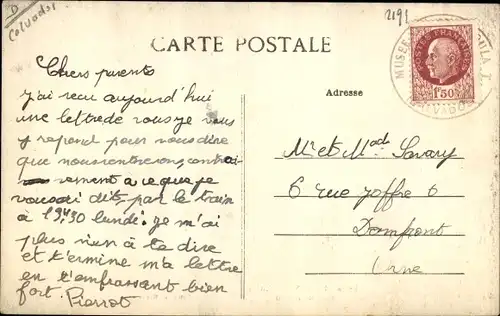 D
Calvados
2191
CARTE POSTALE
Adresse
POSTES FRANÇAISES
1F50
MUSEE
CALVADOS
Chers parents
J'ai recu aujourd'hui
une lettre de vous je vous
y repond pour vous dire
que nous rentrerons contrai
rement a ce que je
vous ai dit, par le train
à 19H30 lundi. Je m'ai
plus rien à te dire
et termine ma lettre
en t'embrassant bien
fort. Pierrot
Mr et Mad Savary
6 rue joffre 6
Domfront
Orne